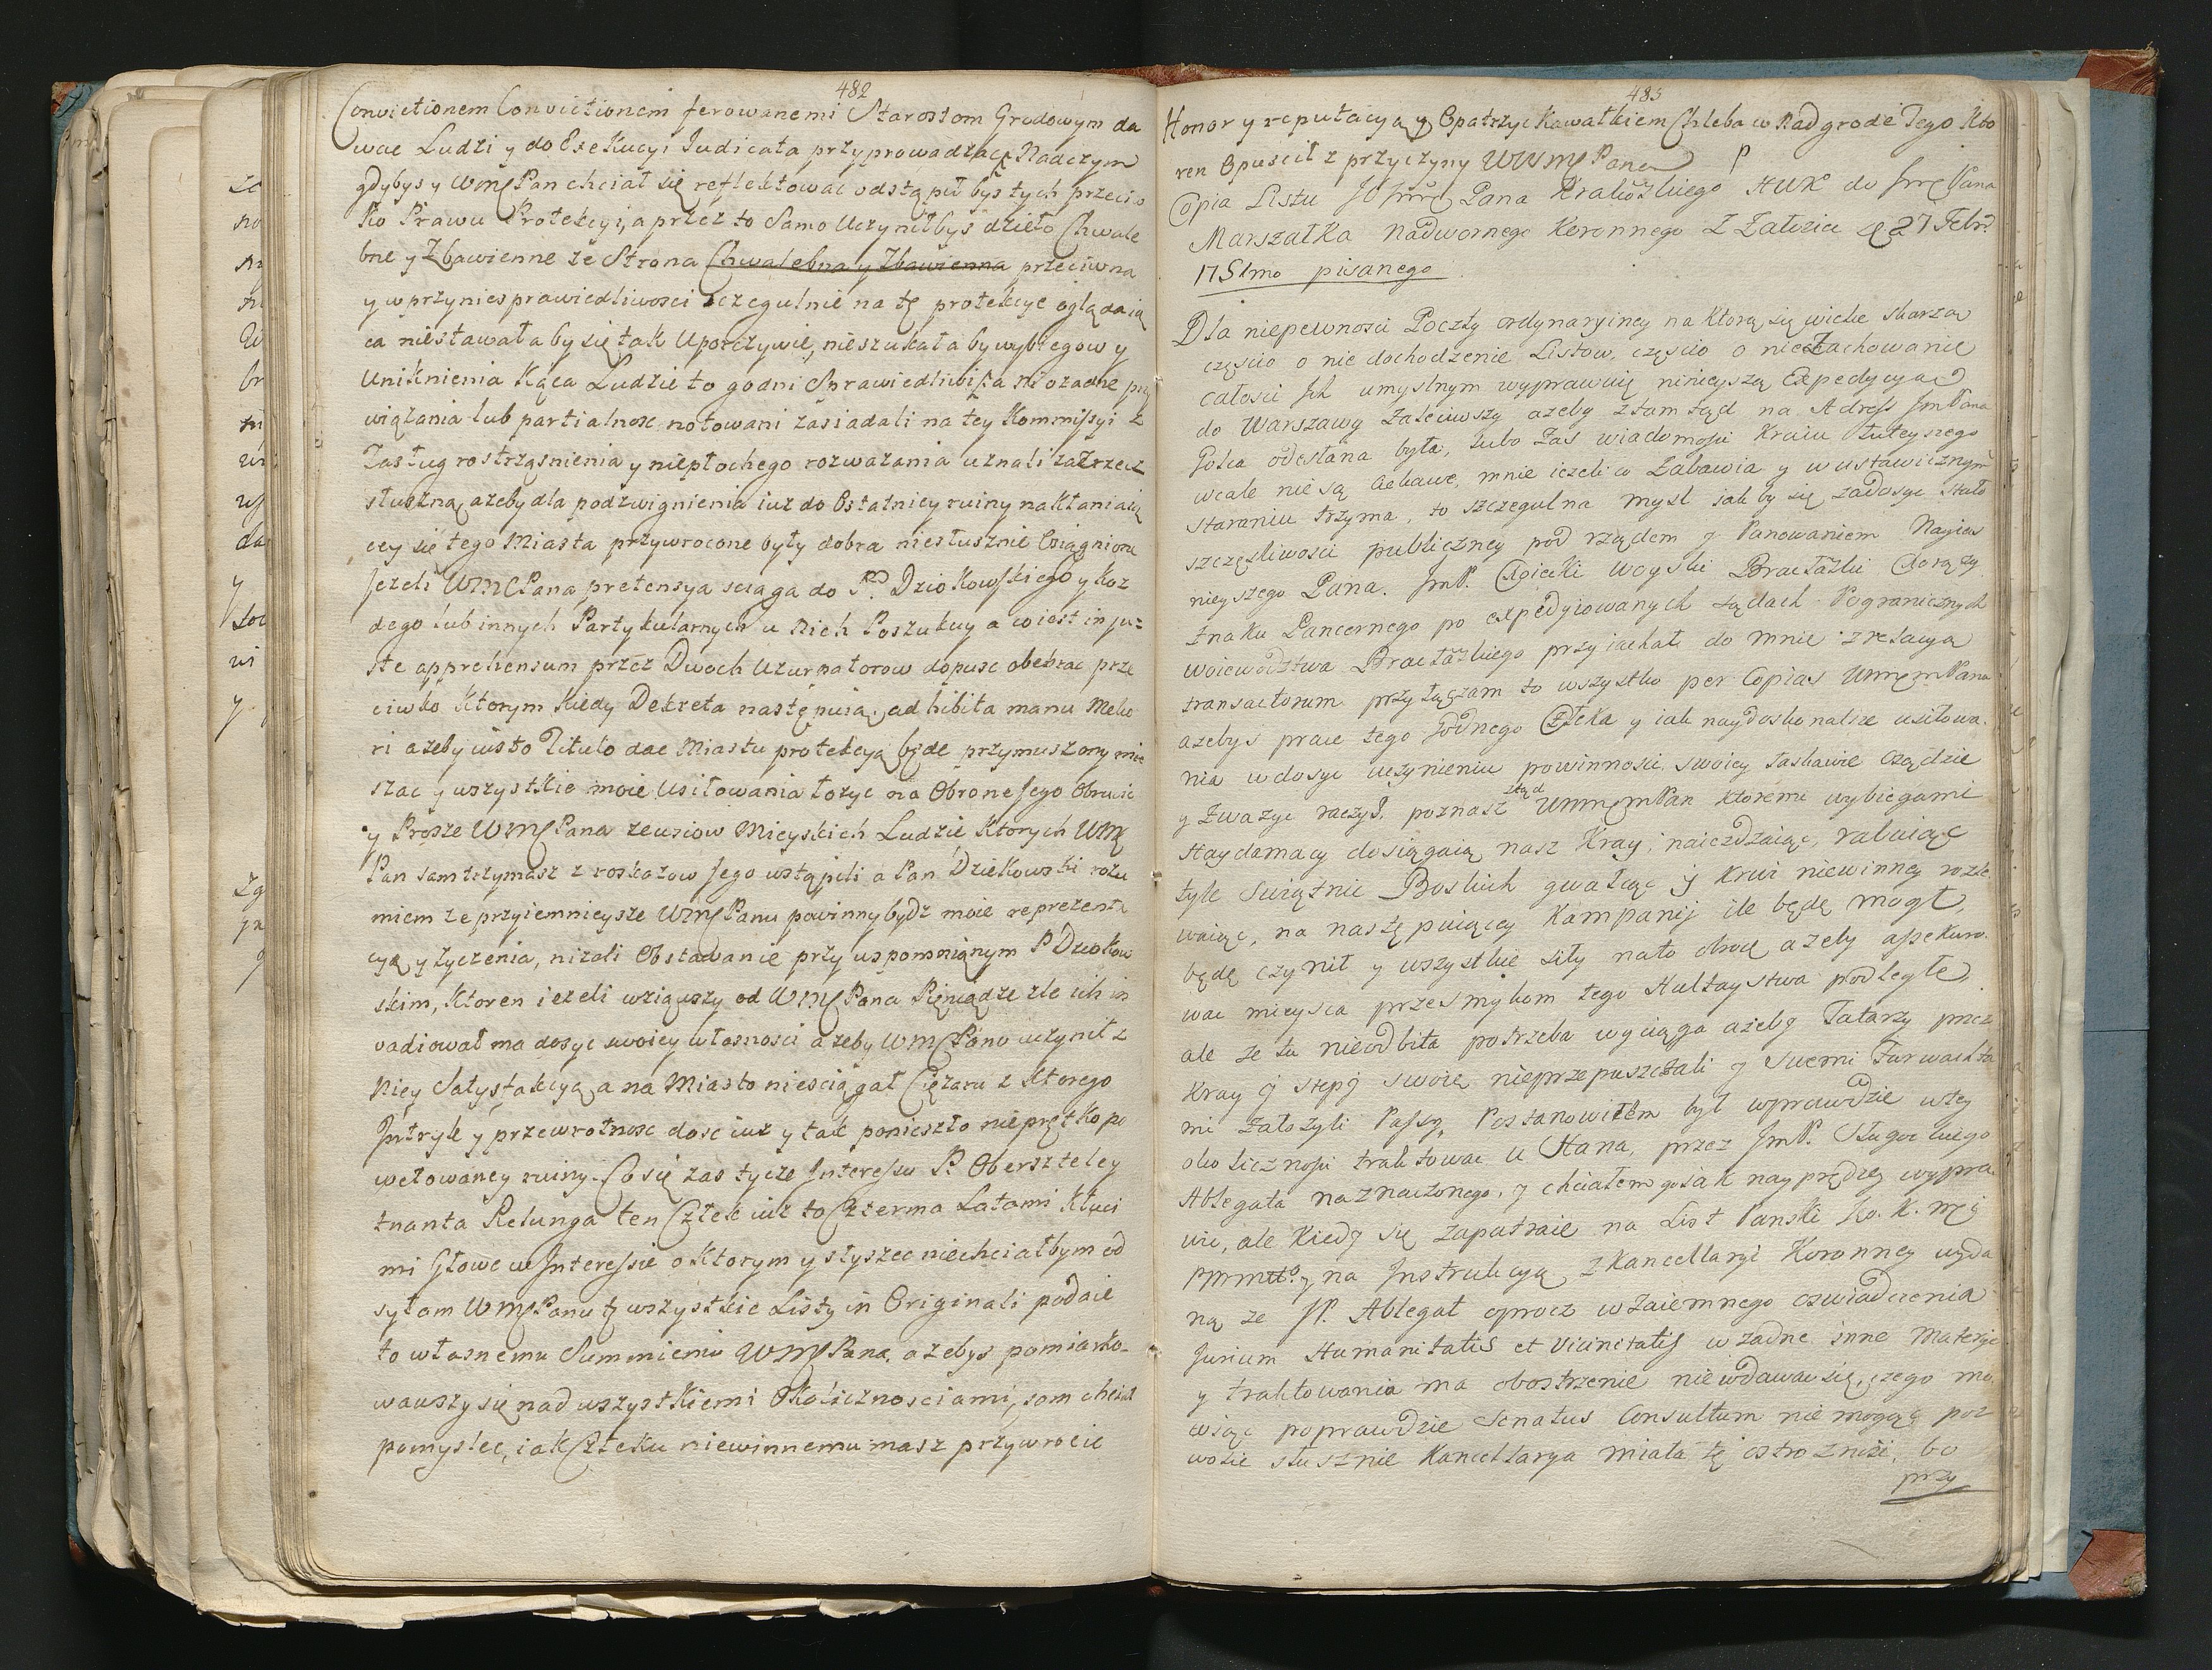 482
Convictionem Convictionem ferowanemi Starostom Grodowym da
wac Ludzi y do Exekucyi Iudicata przyprowadzac, Nadczym
gdybys y WmPan chciał się reflektowac odstąpiłbys tych przeciw
ko Prawu Protekcyi, a przez to samo Uczyniłbys dzieło Chwale
bne y Zbawienne ze Strona Chwalebna y Zbawienna przeciwna
y w przy niesprawiedliwosci szczegulnie na tę protekcye oglądaią
ca niestawała by się tak Uporczywie, nieszukała by wybiegow y
Uniknienia Kąca Ludzie to godni Sprawiedliwi, a ni o zadne przy
wiązania lub partialnosc notowani zasiadali na tey Kommissyi z
Zasług rostrząsnienia y niepłochego rozwazania uznali za Rzecz
słuszną, azeby dla podzwignienia iuz do Ostatniey ruiny nakłaniaią
cey się tego Miasta przywrocone były dobra niesłusznie Osiągnione
Jezeli WmPana pretensya sciąga do P. Dziokowskiego y Kaz
dego lub innych Partykularnych u Nich Poszukuy a wiost inju=
ste apprehensum przez Dwoch Uzurpatorow dopusc obebrac prze
ciwko Ktorym Kiedy Dekreta następuią, ad hibita manu Melio
ri azeby iusto Titulo dac Miastu protekcyą będe przymuszony mie
szac y wszystkie moie Usiłowania łozyc na Obrone Jego Obrucic
y Prosze WmPana zeusiow Mieyskich Ludzie Ktorych Wm
Pan sam trzymasz z roskazow Jego ustąpili a Pan Dziekowski rozu
miem ze przyiemnieysze WmPanu powinny bydz moie reprezenta
cyą y zyczenia, nizeli Obstawanie przy wspomnianym P Dziokow
skim, Ktoren iezeli wziąwszy od WmPana Pieniądze zle ich in
vadiował ma dosyc swoiey własnosci azeby WmPanu uczynił z
Niey Satysfakcyą, a na Miasto niesciągał Cięzaru z Ktorego
Jntryk y przewrotnosc dosc iuz y tak poniesło nieprętko po
wetowaney ruiny. Co się zas tycze Jnteressu P. Oberszteley
tnanta Pelunga ten Człek iuz to Czterma Latami Kłuci
mi Głowe w Jnteressie o Ktorym y słyszec niechciałbym od
syłam WmPanu tę wszystkie Listy in Originali podaie
to własnemu Summieniu WmPana, azebys pomiarko-
wawszy się nad wszystkiemi Okolicznosciami, sam chciał
pomyslec, iak Człeku niewinnemu masz przywrocic
483
Honor y reputacyą y Opatrzyc Kawałkiem Chleba w Nadgrode Tego Kto
ren Opuscił z przyczyny WWmPana
Copia Listu JO Jmc Pana Krakowskiego HWK do Jmc Pana
Marszałka Nadwornego Koronnego Z Załozic D 27 Febr
1751mo pisanego
Dla niepewnosci Poczty ordynaryiney na Ktorą się wielce skarzą
częscio o nie dochodzenie Listow, częscio o niezachowanie
całosci Jch umyslnym wyprawuię ninieyszą Expedycyą
do Warszawy Zaleciwszy azeby ztamtąd na Adress JmPana
Polca odesłana była, lubo Zas wiadomosci Kraiu tuteyszego
wcale nie są ciekawe, mnie iezeli co Zabawia y w ustawicznym
staraniu trzyma, to szczegulna mysl iak by się zadosyc stało
szczęsliwosci publiczney pod rządem y Panowaniem Nayias
nieyszego Pana. JmP. Czosiecki Woyski Bracławski Chorązy
znaku Pancernego po expedyiowanych sądach Pogranicznych
woiewodztwa Bracławskiego przyiachał do mnie z relacyą
transactorum przyłączam to wszystko per Copias WmmPana
azebys prace tego Godnego Człeka y iak naydoskonalsze usiłowa-
nia w dosyc uczynieniu powinnosci swoiey łaskawie osądzic
y Zwazyc raczył, poznasz ztąd WmmPan Ktoremi wybiegami
Haydamacy dosiągaią nasz Kray, naiezdzaiąc, rabuiąc
tyle swiątnic Boskich gwałcąc y Krwi niewinney rozle
waiąc, na następuiącey Kampanij ile będę mogł,
będę czynił y wszystkie siły nato obroce azeby assekuro-
wac mieysca przesmykom tego Hultaystwa podległe,
ale ze tu nieodbita potrzeba wyciąga azeby Tatarzy przez
Kray y stepy swoie nieprzepuszczali y Swemi Furwachta
mi załozyli Passy, Postanowiłem był wprawdzie w tey
okolicznosci traktowac u Hana, przez JmP. Sługockiego
Ablegata naznaczonego, y chciałem go iak nayprędzey wypra
wic, ale Kiedy się zapatraie na List Panski Jo. K. Mci
PPmnto. y na Jnstrukcyą z Kancellaryi Koronney wyda
ną ze JP. Ablegat oprocz wzaiemnego oswiadczenia
Jurium Humanitatis et Vicinitatis w zadne inne Materye
y traktowania ma obostrzenie niewdawac się, czego mo
wiąc poprawdzie Senatus Consultum nie mogąc poz
wolic słusznie Kancellarya miała tę ostroznosc, bo
przy